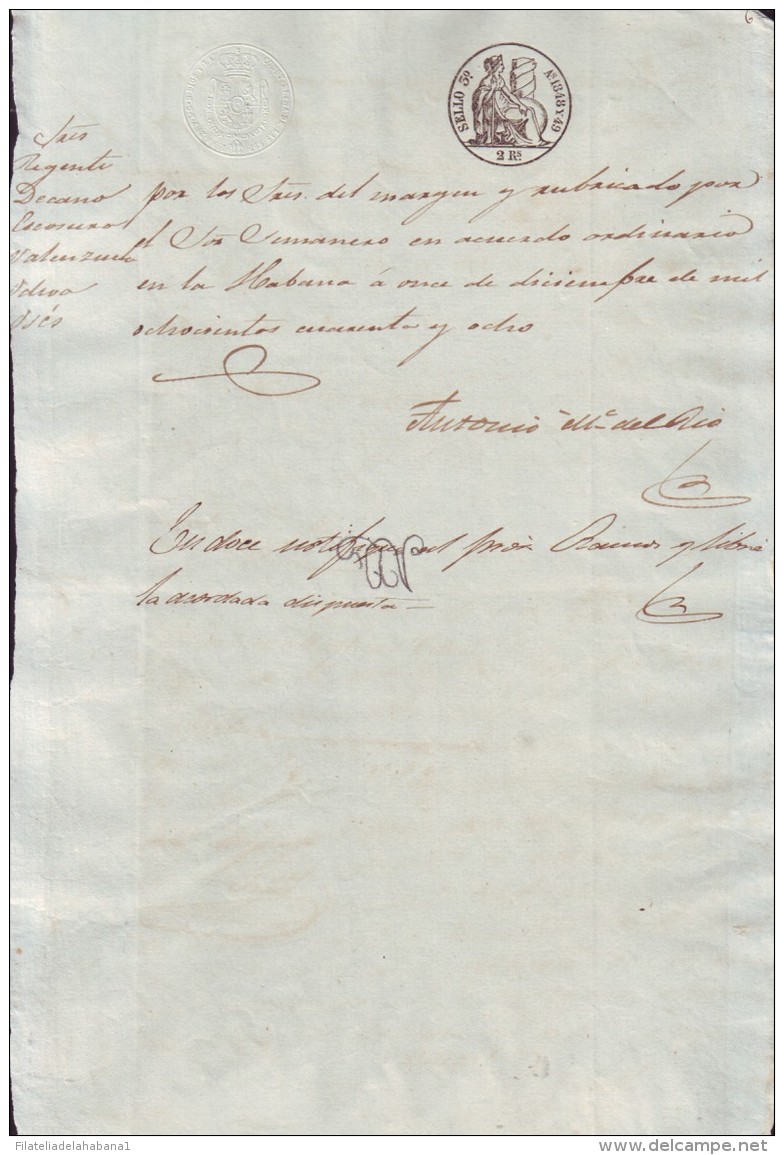 6
SELLO 3º Aˢ 1848 Y 49
2 Rˢ
Sres
Regente
Decano
Escosura
Valenzuela
Osés
por los Sres. del margen y rubricado por
el Sor Semanero en acuerdo ordinario
en la Habana á once de diciembre de mil
ochocientos cuarenta y ocho
Antonio Mª del Rio
En doce notifique al Ramos y libré
la acordada dispuesta=
Filateliadelahabana1
www.delcampe.net